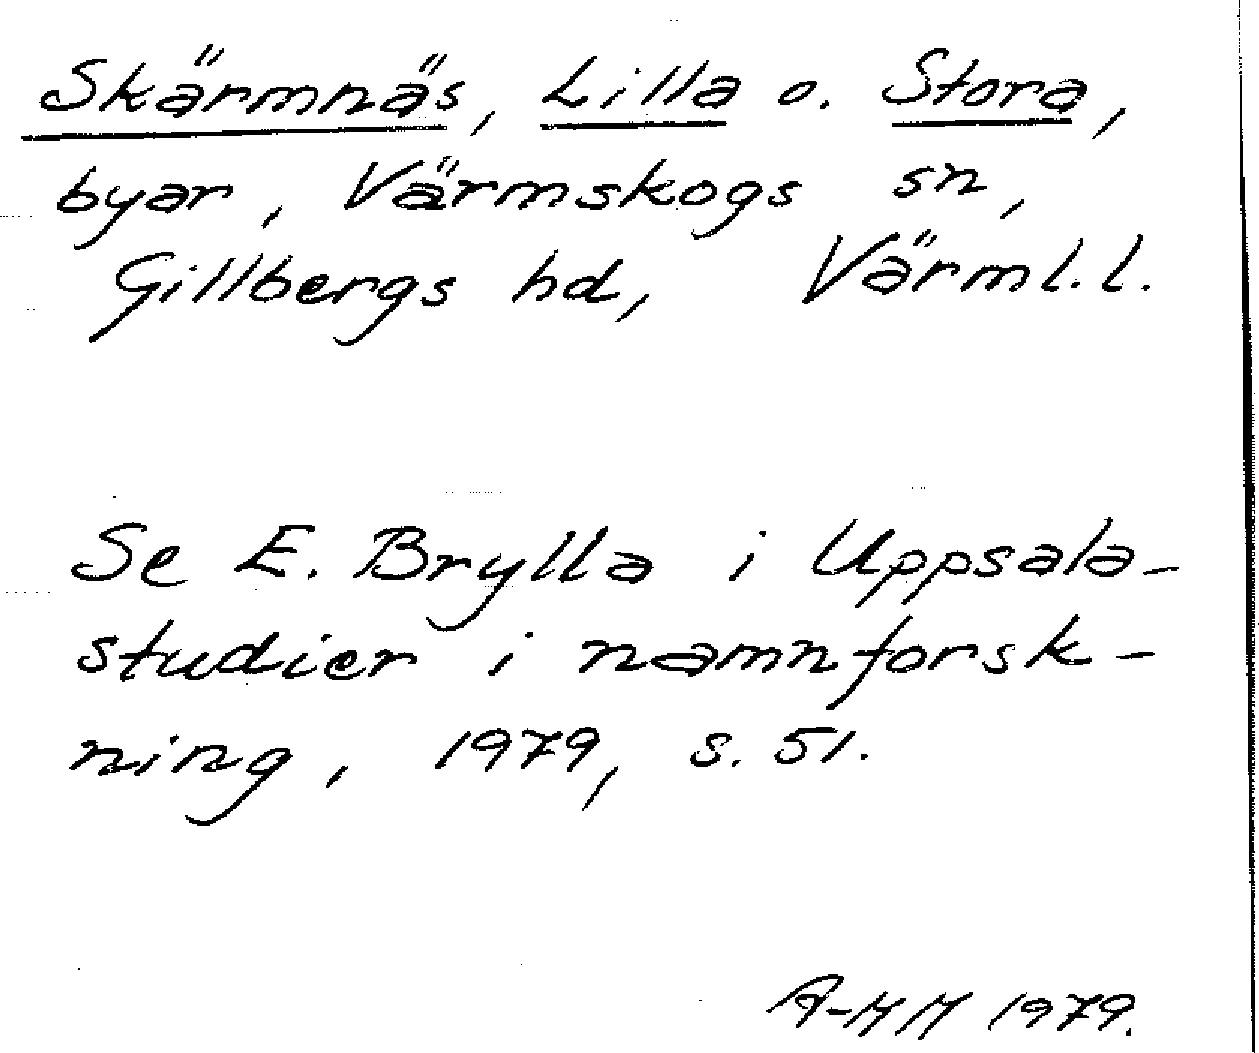 Skärmnäs, Lilla o. Stora,
byar, Värmskogs sn,
Gillbergs hd, Värml. l.
Se E. Brylla i Uppsala-
studier i namnforsk-
ning, 1979, s. 51.
A-MM 1979.